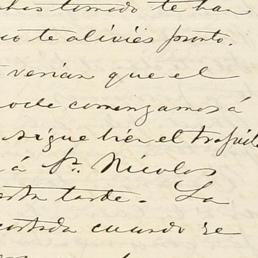 tomado te han
te alivies pronto.
verían que el
comenzamos á
sigue bien el
á Sn. Nicolas
esta tarde. La
cortada cuando se